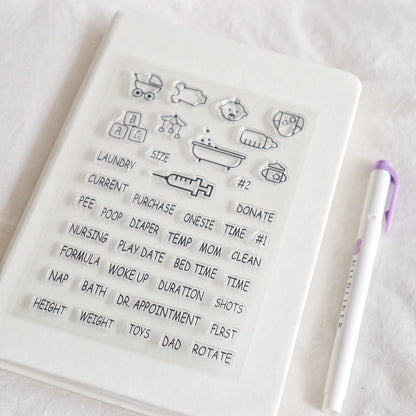 B
A C
LAUNDRY SIZE
#2
CURRENT PURCHASE DONATE
PEE POOP DIAPER ONESIE TIME #1
NURSING PLAY DATE TEMP MOM CLEAN
FORMULA WOKE UP BED TIME TIME
NAP BATH DURATION SHOTS
DR. APPOINTMENT FLRST
HEIGHT WEIGHT TOYS DAD ROTATE